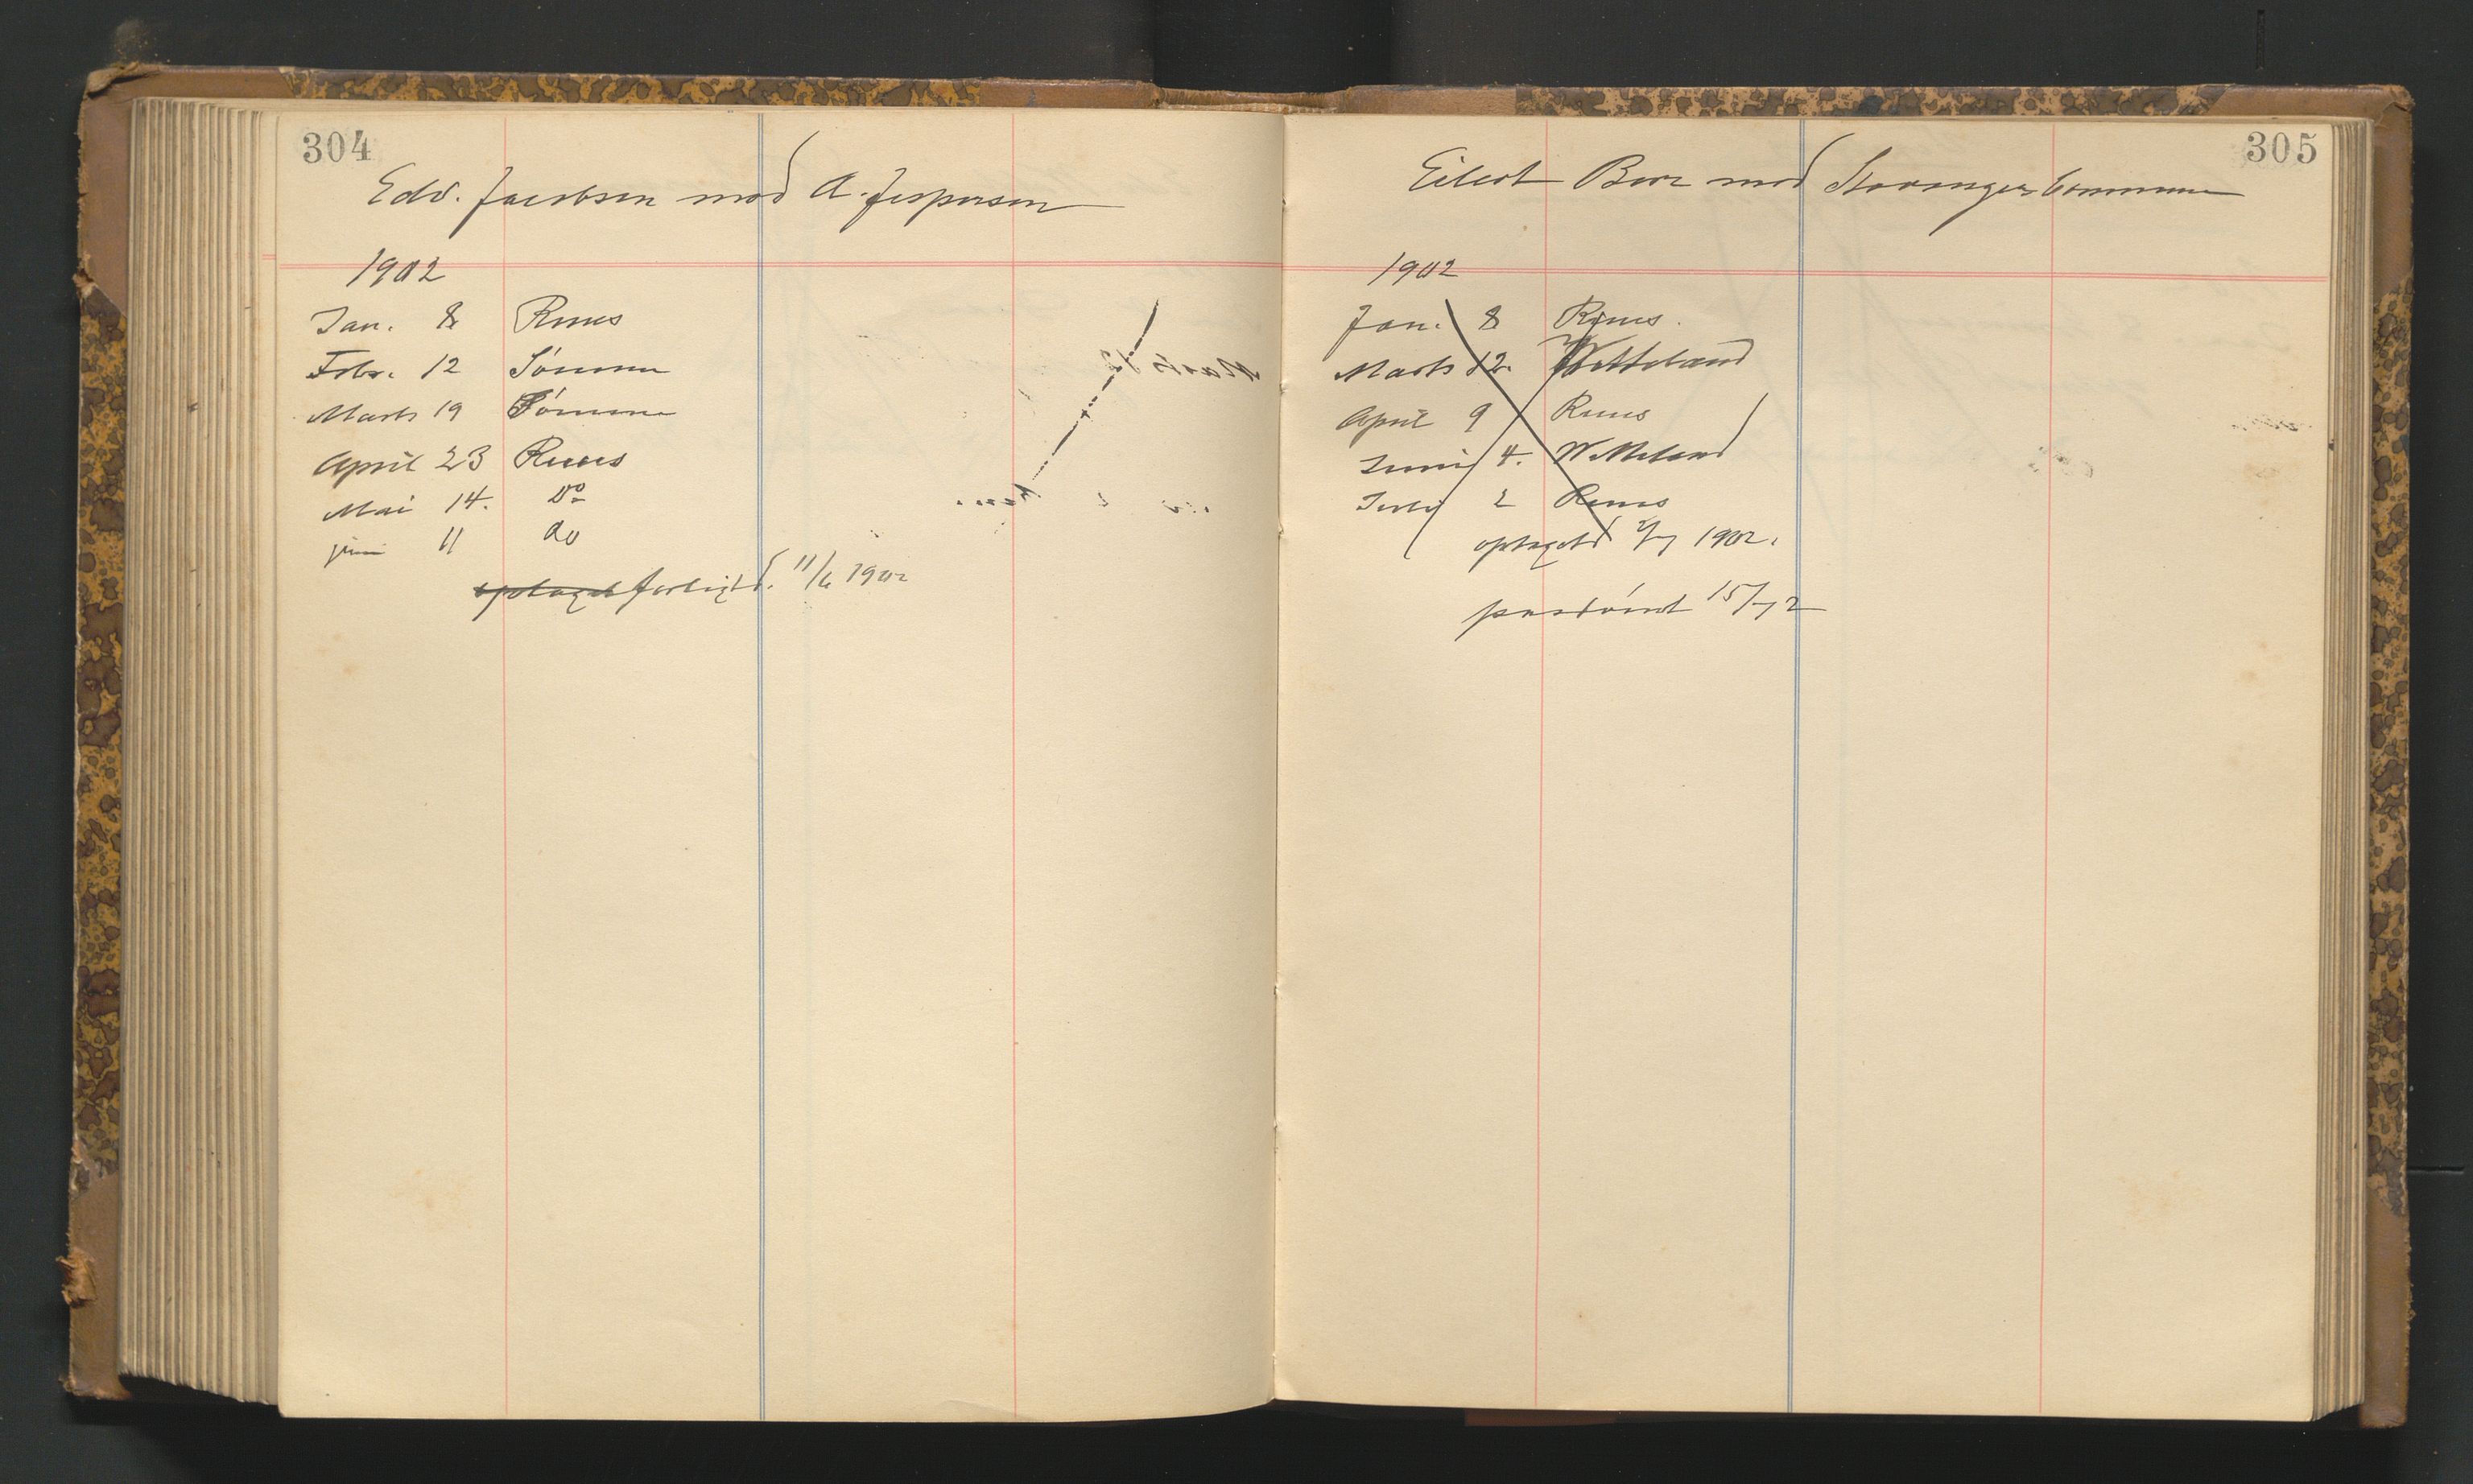 304
Edv. Jacobsen mod A. Jespersen
1902
Jan. 8 Rmes
Febr. 12 Sömme
Marts 19 Sömme
April 23 Rmes
Mai 14. Do
juni 11 do
optaget forligt. 11/6 1902
305
Eilert Bore mod Stavanger Commune
1902
Jan. 8 Rmes
Marts 12. Wetteland
April 9 Rmes
Juni 4. Wetteland
July 2 Rmes
optaget 2/7 1902.
paadömt 15/7 2